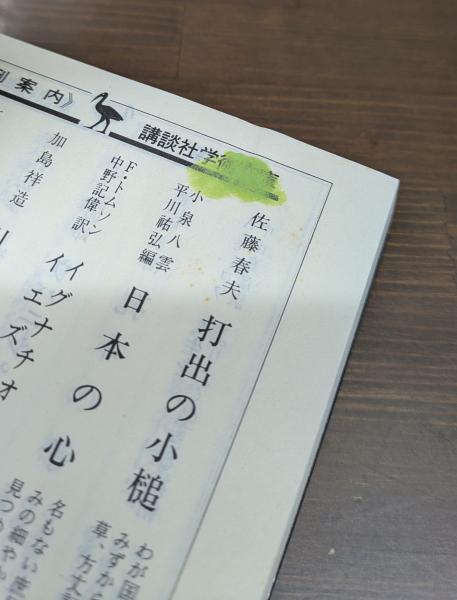 案内》
講談社学
佐藤春夫
打出の小槌
わが国
みずから
草、方丈
小泉八雲
平川祐弘編
日本の心
名もない
みの細やか
見つめ
F・トムソン
中野記偉訳
イグナチオ
イエズ
加島祥造